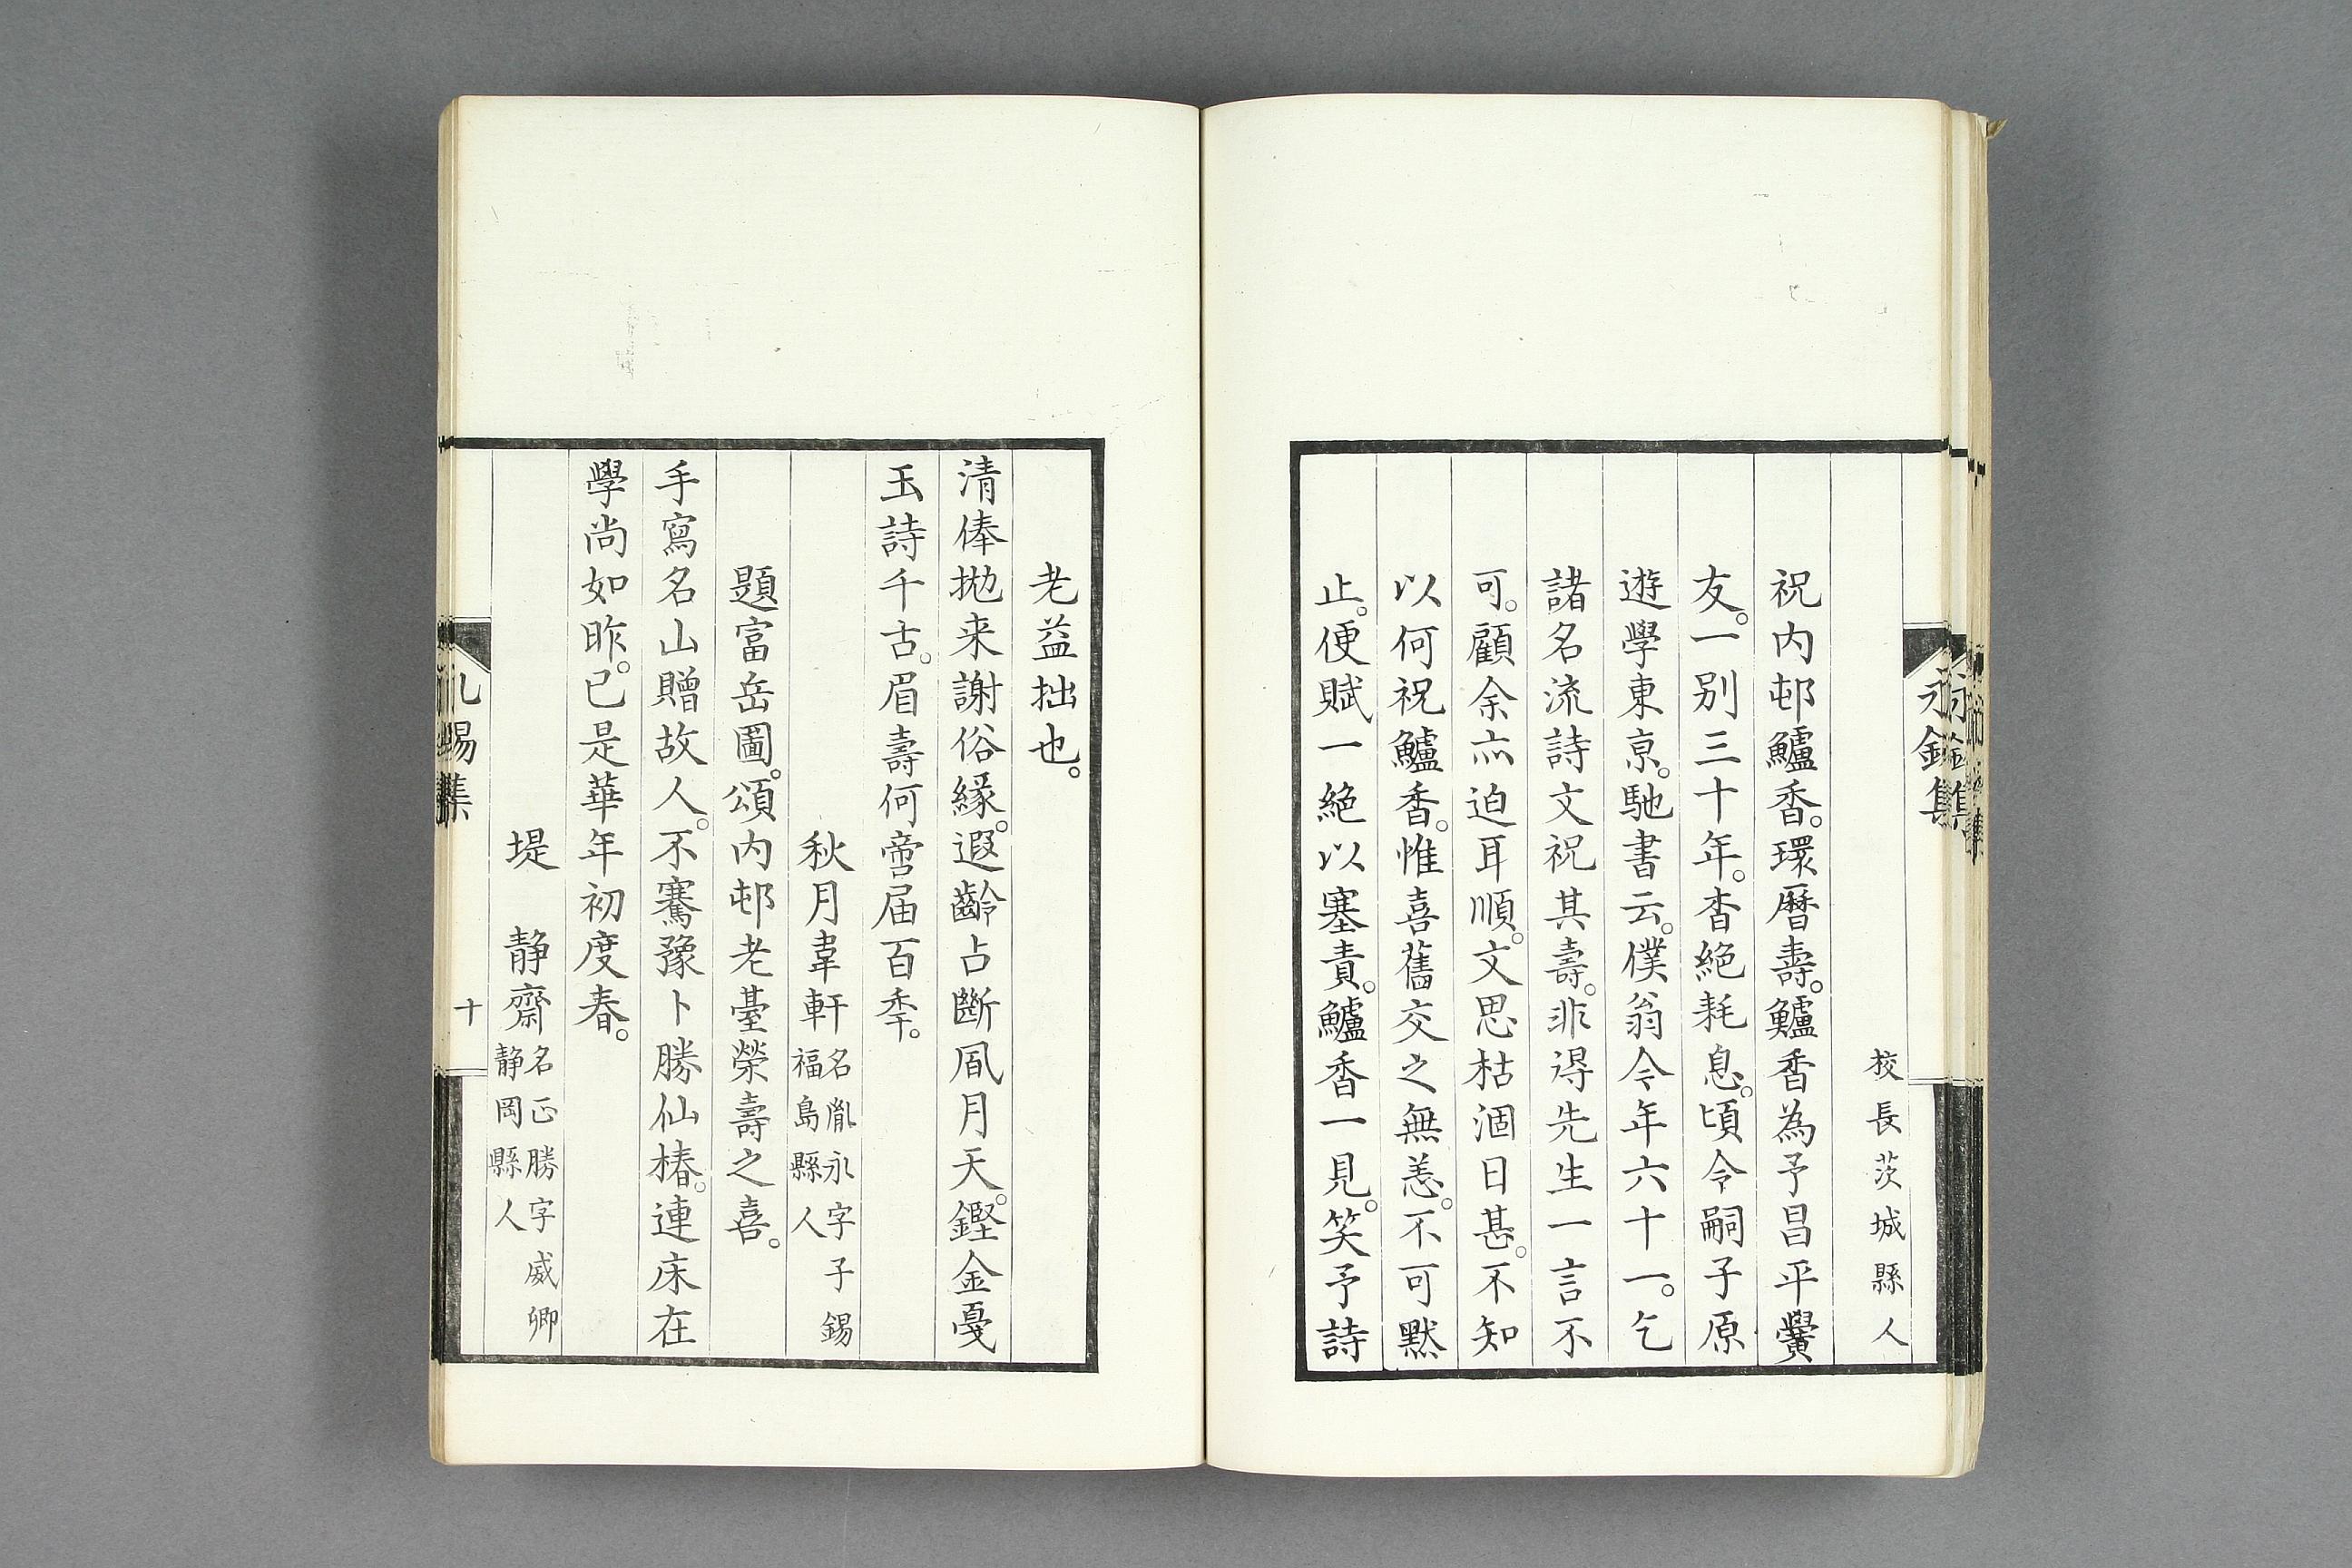 校長茨城縣人
祝内邨鱸香。環暦壽。鱸香為予昌平黌
友。一別三十年。杳絶耗息。頃令嗣子原
遊學東京。馳書云。僕翁今年六十一。乞
諸名流詩文祝其壽。非得先生一言不
可。顧余亦迫耳順。文思枯涸日甚。不知
以何祝鱸香。惟喜舊交之無恙。不可黙
止。便賦一絶以塞責。鱸香一見。笑予詩
老益拙也。
清俸拋来謝俗縁。遐齡占斷風月天。鏗金戞
玉詩千古。眉壽何啻届百秊。
秋月韋軒 名胤永字子錫 福島縣人
題富岳圖。頌内邨老臺榮壽之喜。
手寫名山贈故人。不騫豫卜勝仙椿。連床在
學尚如昨。已是華年初度春。
堤 静齋 名正勝字威卿 静岡縣人
十